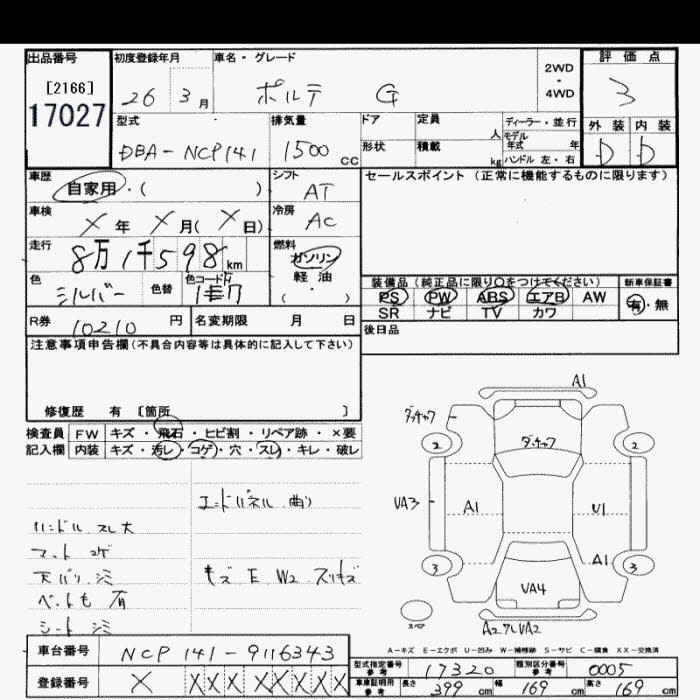 出品番号
[2166]
17027
初度登録年月
26 3月
車名・グレード
ポルテ G
2WD
・
4WD
評価点
3
型式
DBA-NCP141
排気量
1500 cc
ドア
形状
定員 人
積載 kg
ディーラー・並行
モデル年式 年
ハンドル 左・右
外装 内装
D D
車歴
自家用・( )
シフト
AT
セールスポイント (正常に機能するものに限ります)
車検
X年 X月(X日)
冷房
AC
走行
8万1千598 km
燃料
ガソリン
軽油
・
( )
色
シルバー
色替
色コード
1F7
装備品 (純正品に限り○をつけてください)
PS PW ABS エアB AW
SR ナビ TV カワ
新車保証書
有・無
R券 10210 円
名変期限 月 日
後日品
注意事項申告欄(不具合内容等は具体的に記入して下さい)
修復歴 有 [箇所 ]
検査員記入欄
FW キズ・飛石・ヒビ割・リペア跡・×要
内装 キズ・汚レ・コゲ・穴・スレ・キレ・破レ
エンドパネル 曲り
ハンドル スレ大
マット コゲ
天バリ シミ
キズ E W2 スリキズ
ペット毛 有
シート シミ
A1
ダッチャク
ダッチャク
2 2
VA3
A1
U1
A1
3 3
VA4
スペア
A2 ワレ VA2
A-キズ E-エクボ U-凹み W-補修跡 S-サビ C-腐食 XX-交換済
車台番号 NCP141-9116343
登録番号 X XXXXXXXX
型式指定番号 参考 17320
類別区分番号 参考 0005
車庫証明用 参考 長さ 399 cm 幅 169 cm 高さ 169 cm